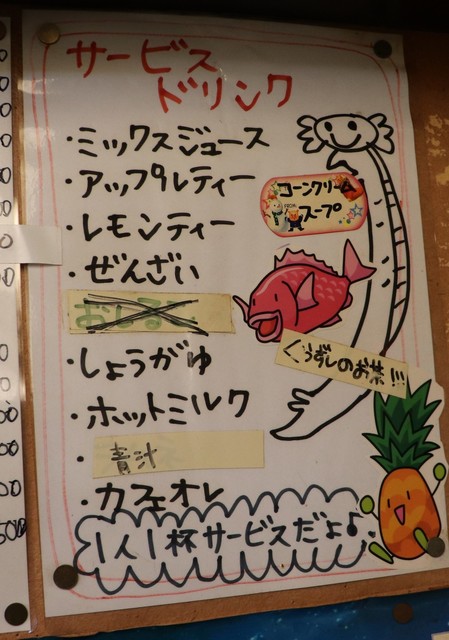 サービス
ドリンク
・ミックスジュース
・アップルティー
・レモンティー
・ぜんざい
おしるこ
・しょうがゆ
・ホットミルク
・青汁
・カフェオレ
1人1杯サービスだよ♪
コーンクリーム
スープ
くろずしのお茶!!!